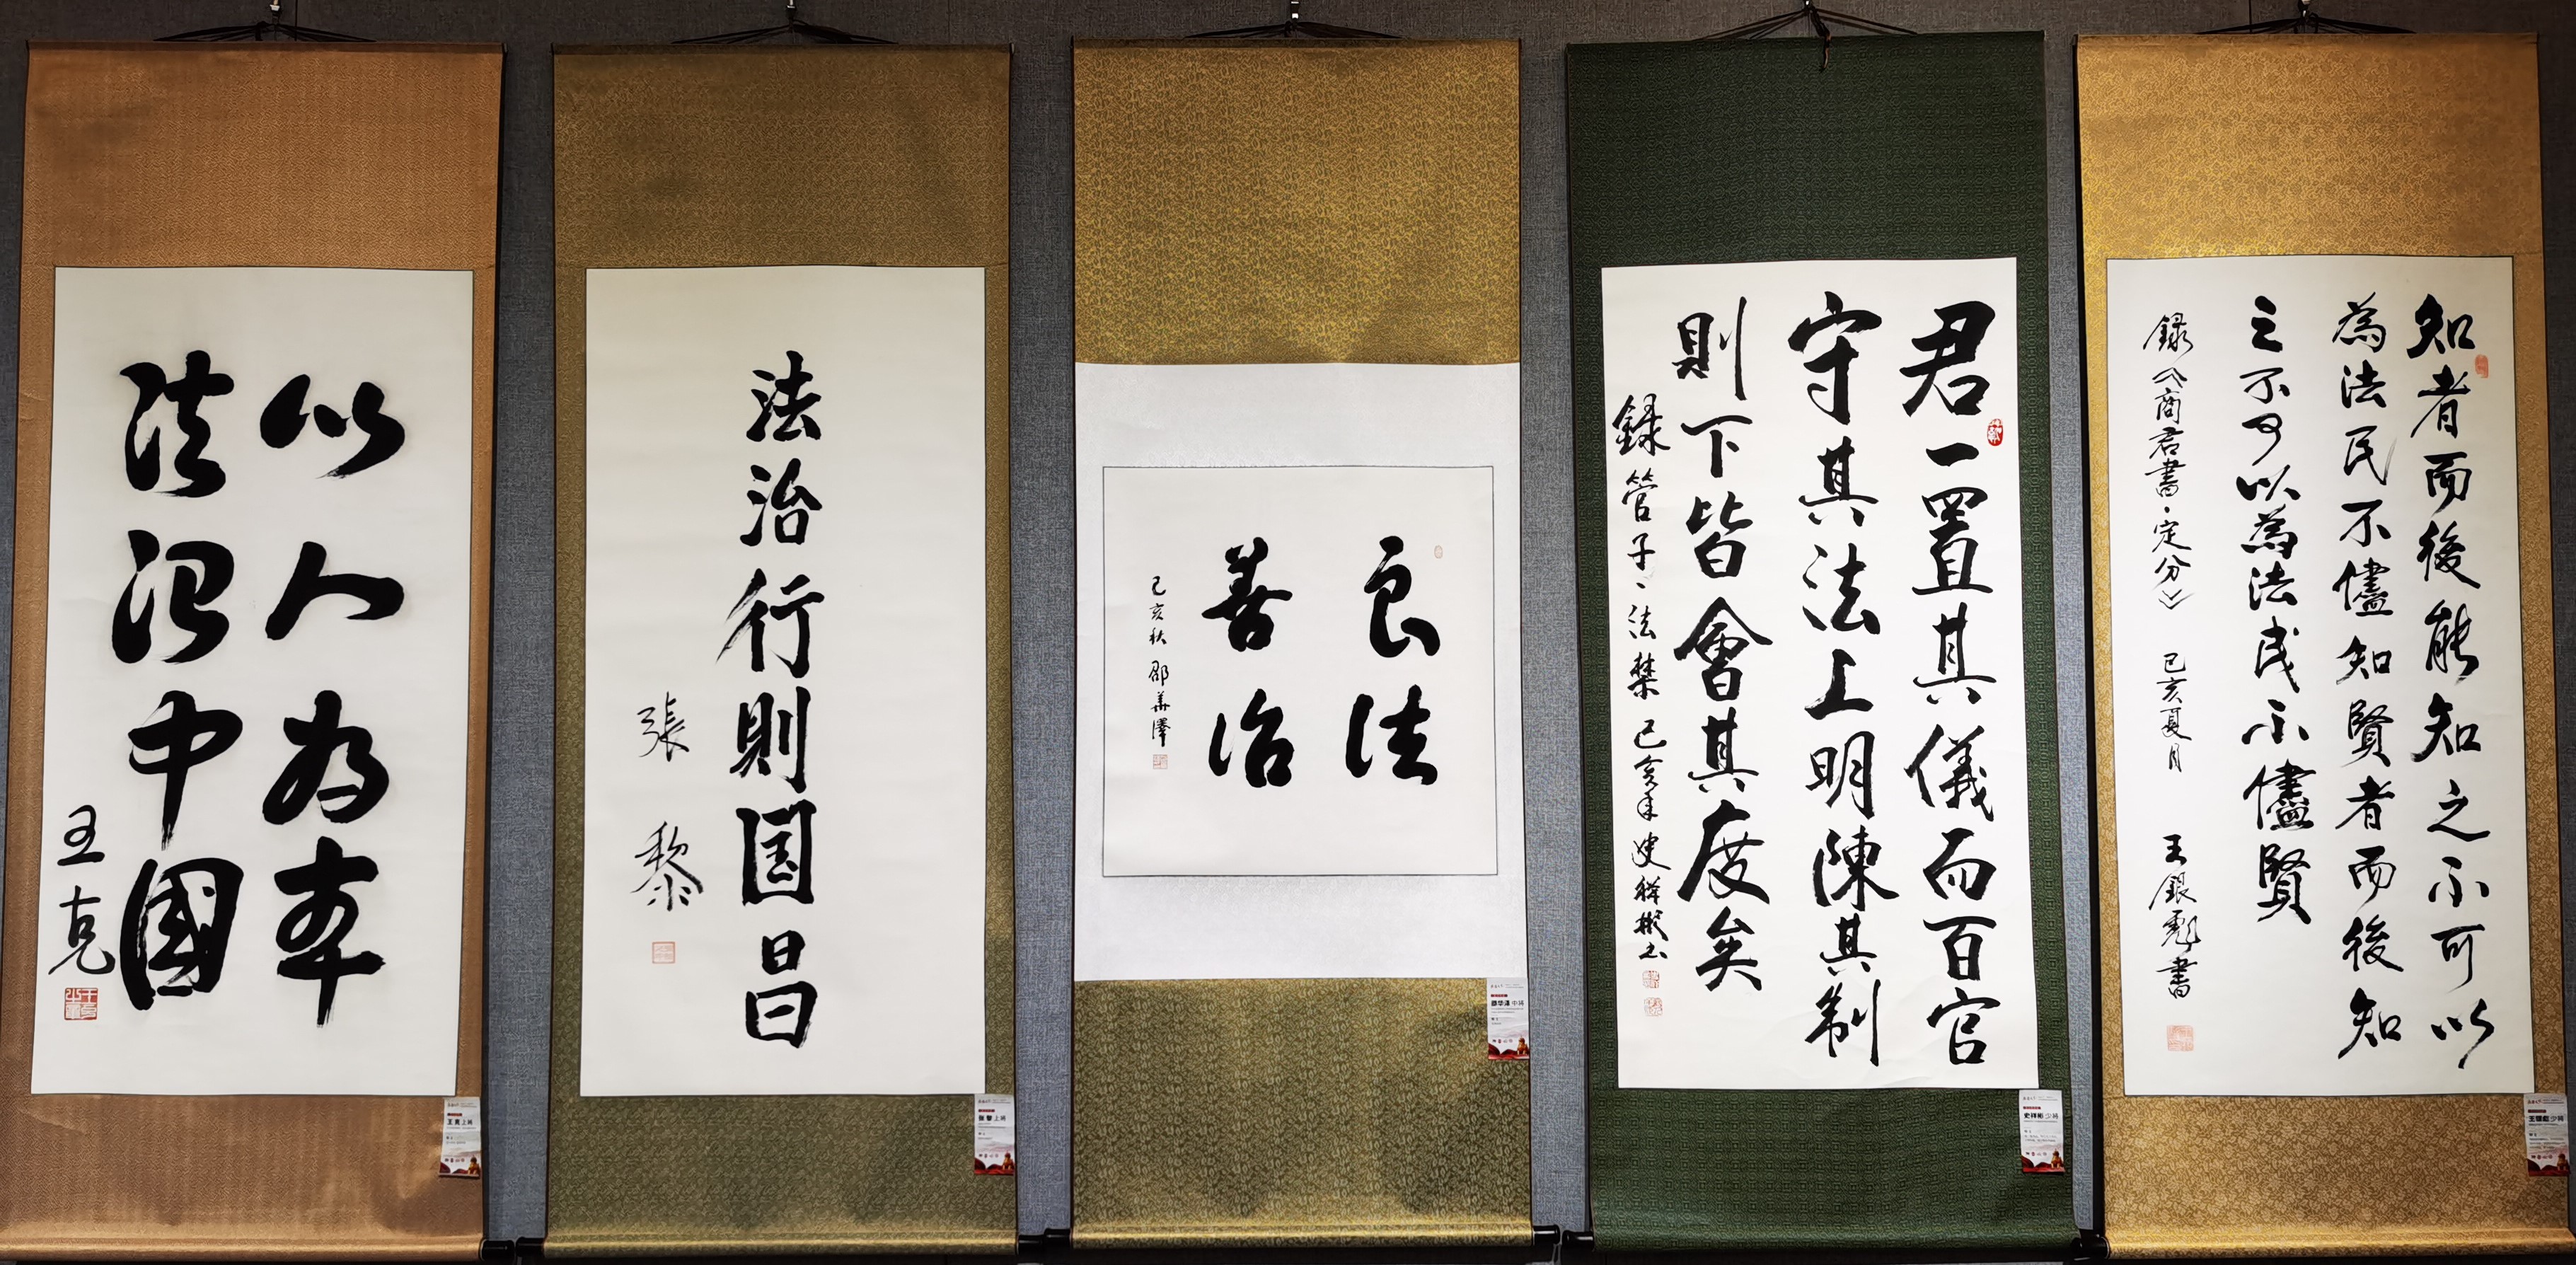 以人为本
法治中國
王克
王克 上将
法治行則国昌
張黎
张黎 上将
良法
善治
己亥秋 邵華澤
邵华泽 中将
君一置其儀而百官
守其法上明陳其制
則下皆會其度矣
録管子、法禁 己亥年 史祥彬书
史祥彬 少将
知者而後能知之不可以
為法民不儘知賢者而後知
之不可以為法民不儘賢
録《商君書·定分》 己亥夏月 王銀彪書
王银彪 少将